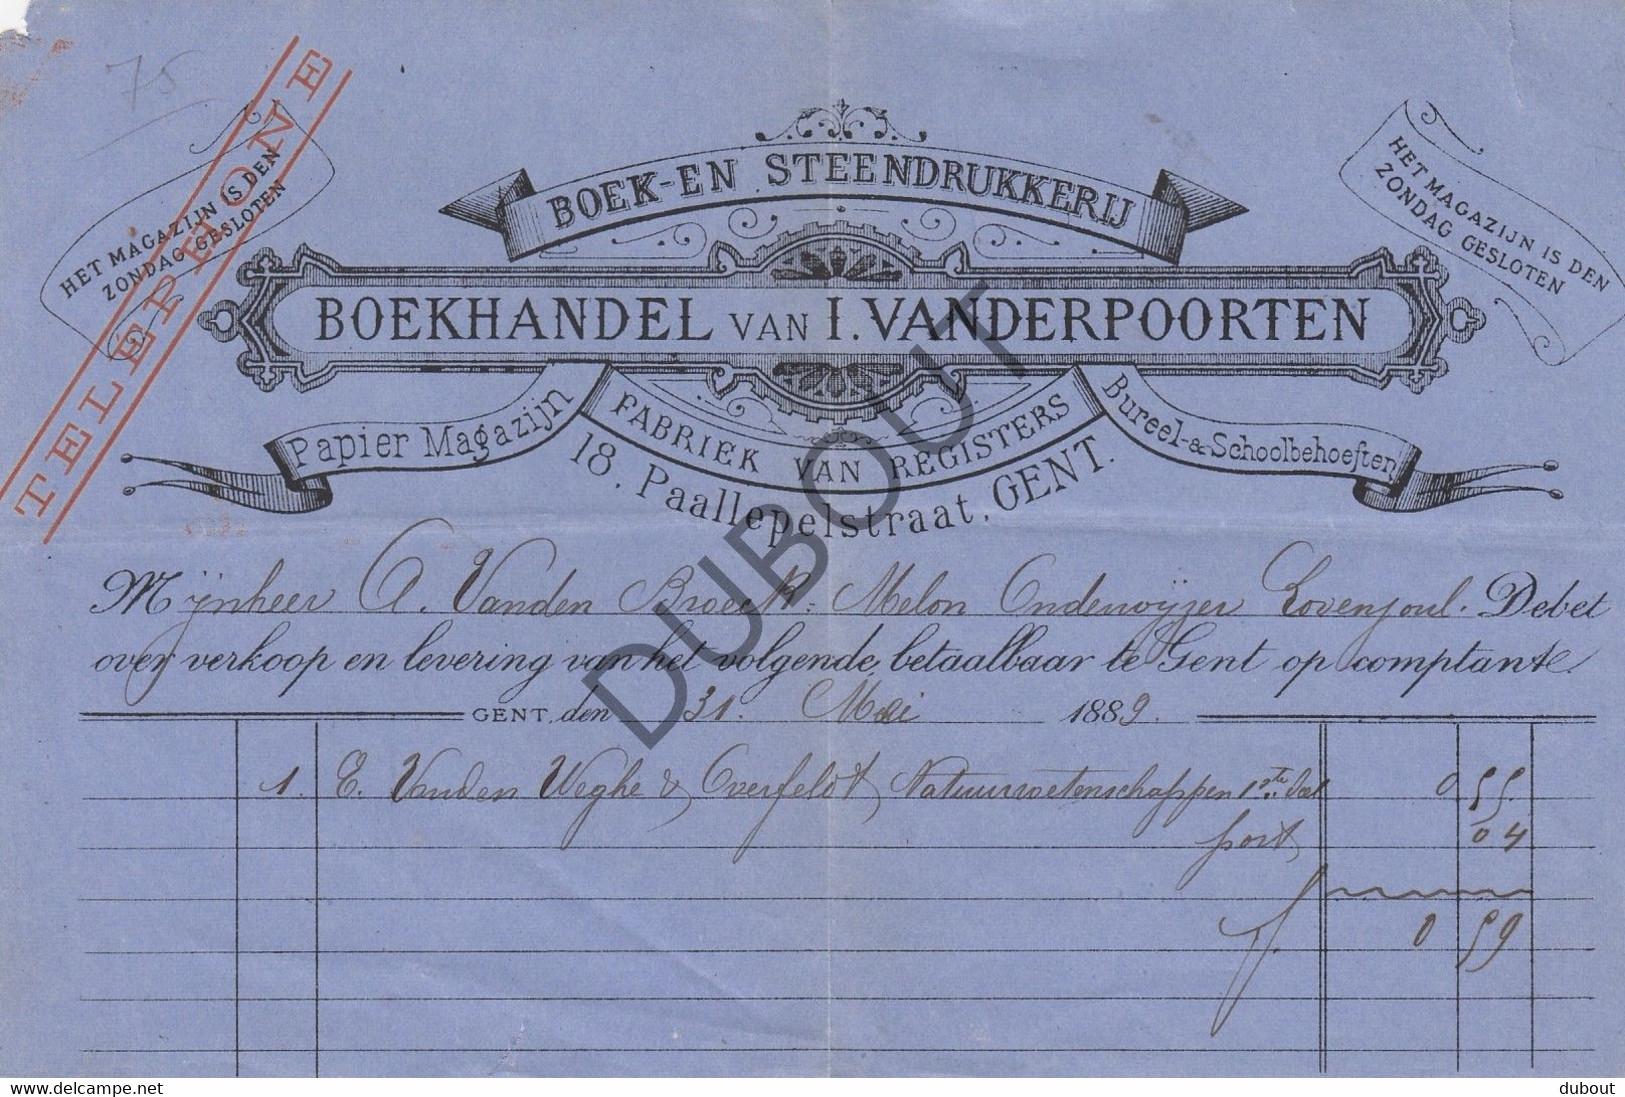 75
TELEPHONE
HET MAGAZIJN IS DEN
ZONDAG GESLOTEN
BOEK-EN STEENDRUKKERIJ
HET MAGAZIJN IS DEN
ZONDAG GESLOTEN
BOEKHANDEL VAN I. VANDERPOORTEN
Papier Magazijn
FABRIEK VAN REGISTERS
Bureel-&-Schoolbehoeften
18, Paallepelstraat, GENT.
Mijnheer A. Vanden Broeck-Melon Onderwyzer Lovenjoul. Debet
over verkoop en levering van het volgende, betaalbaar te Gent op comptante.
GENT, den 31. Mei 1889.
1. E. Vanden Weghe & Overfeldt, Natuurwetenschappen 1ste deel 0 55.
port 04
f. 0 59
DUBOUT
www.delcampe.net
dubout